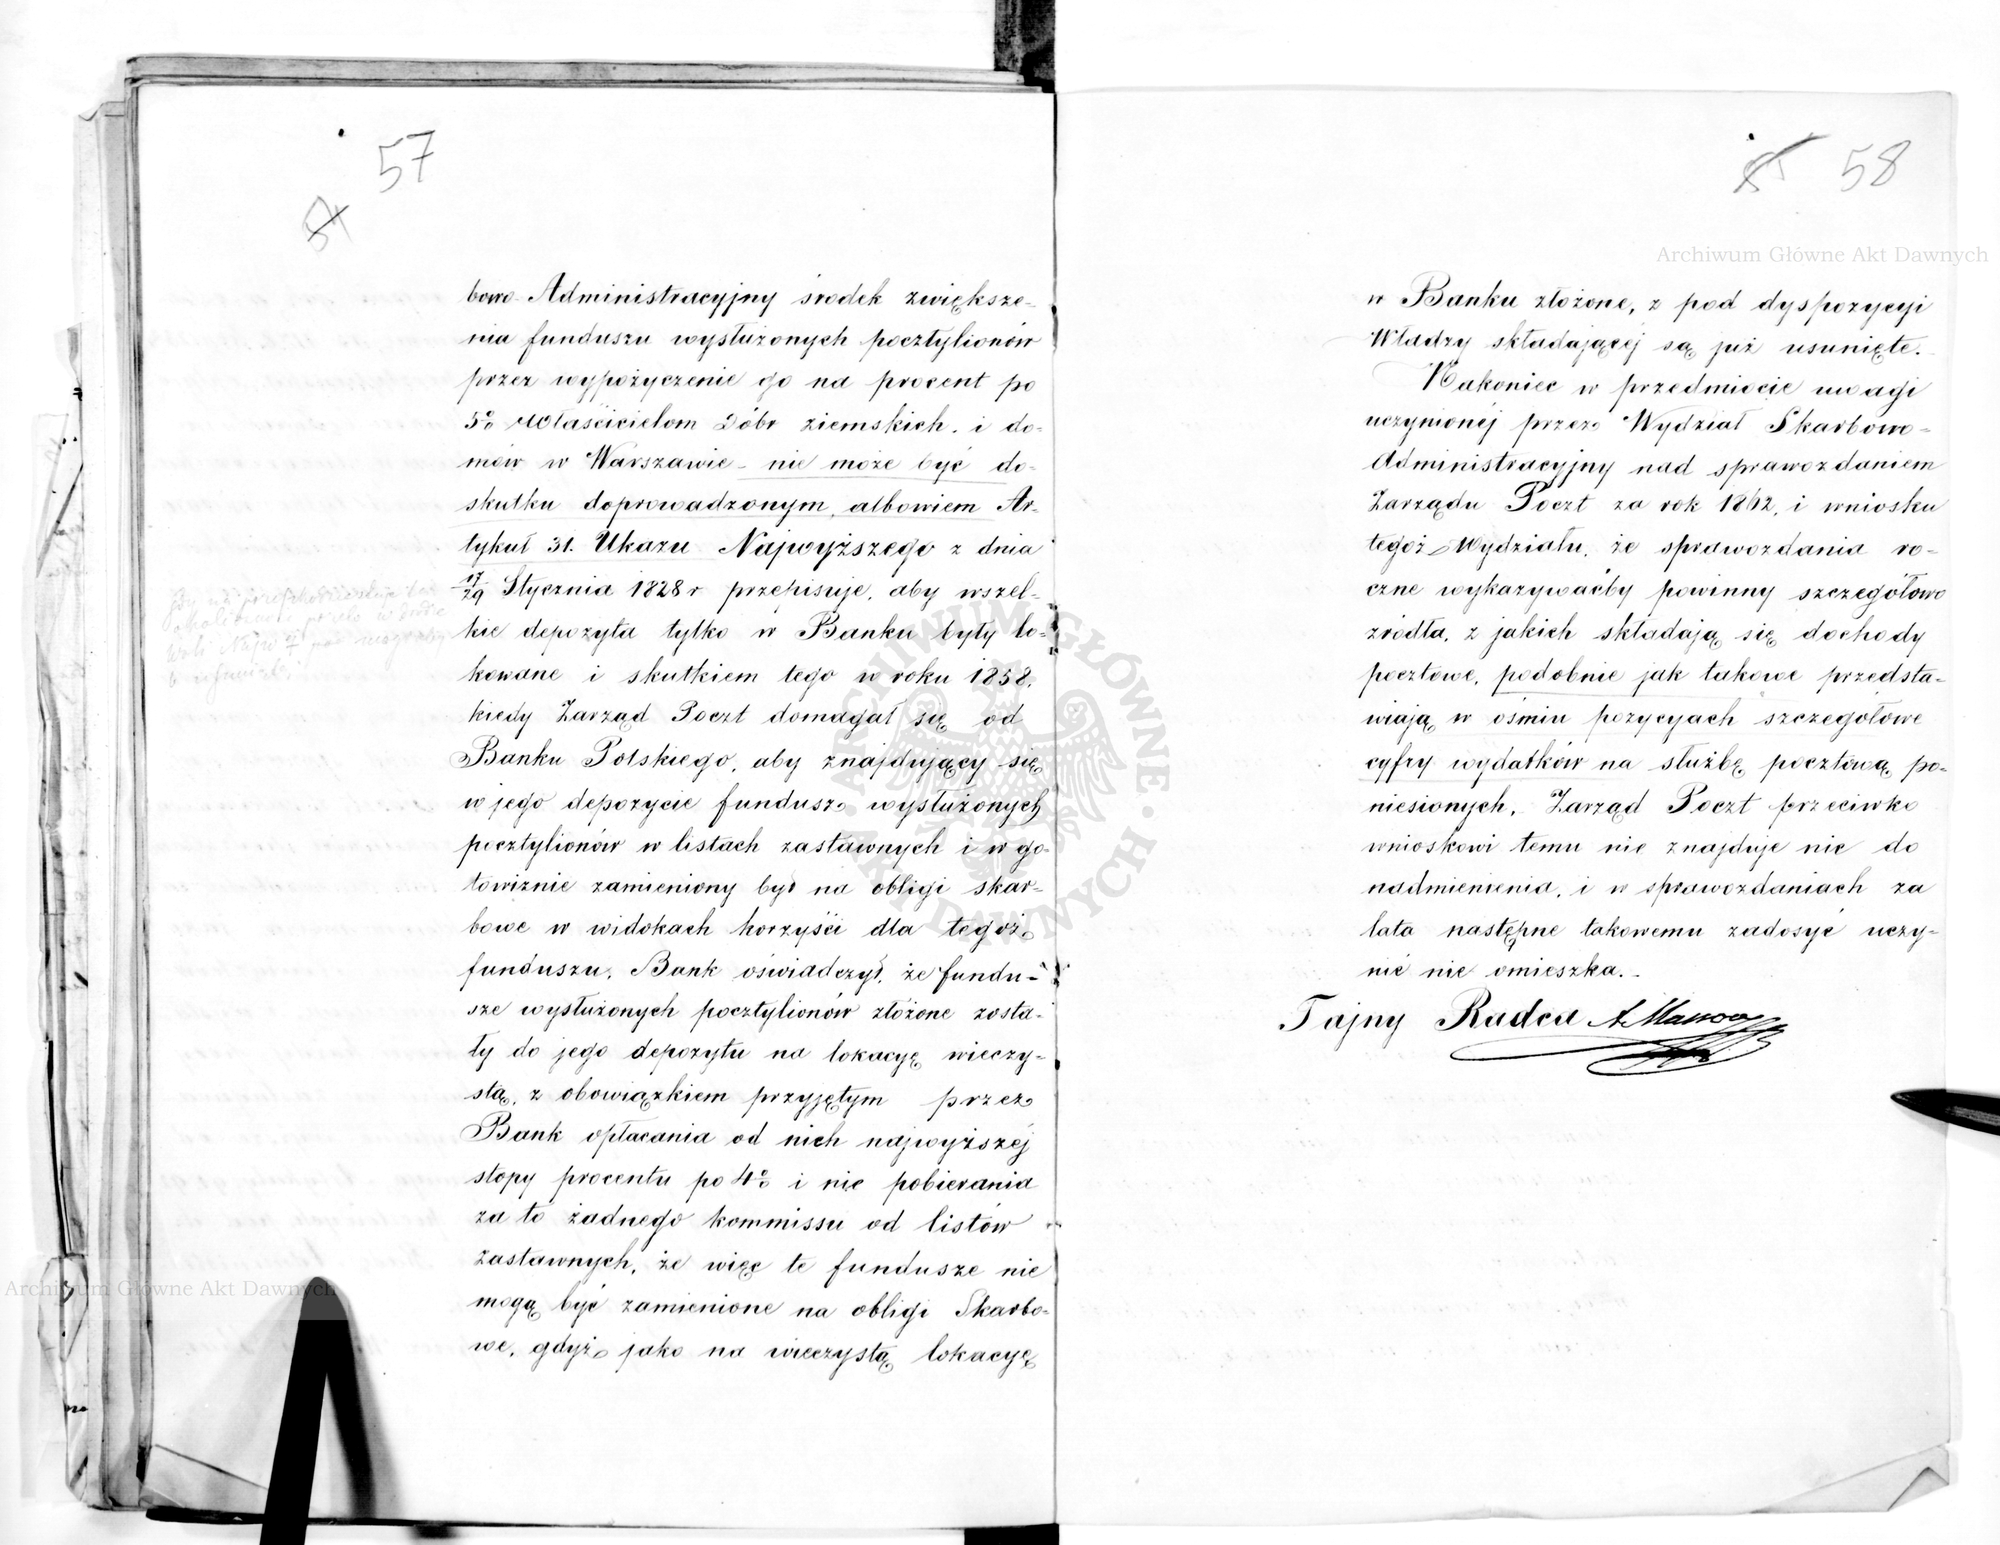 57
57
bowo Administracyjny środek zwiększe-
nia funduszu wysłużonych pocztylionów
przez wypożyczenie go na procent po
5% właścicielom Dóbr ziemskich i do-
mów w Warszawie - nie może być do-
skutku doprowadzonym, albowiem Ar-
tykuł 31. Ukazu Najwyższego z dnia
17/29 Stycznia 1828 r przepisuje, aby wszel-
kie depozyta tylko w Banku były lo-
kowane i skutkiem tego w roku 1858,
kiedy Zarząd Poczt domagał się od
Banku Polskiego, aby znajdujący się
w jego depozycie fundusz wysłużonych
pocztylionów w listach zastawnych i w go-
towiznie zamieniony był na obligi skar-
bowe w widokach korzyści dla tegoż
funduszu, Bank oświadczył, że fundu-
sze wysłużonych pocztylionów złożone zosta-
ły do jego depozytu na lokacyę wieczy-
stą, z obowiązkiem przyjętym przez
Bank opłacania od nich najwyższéj
stopy procentu po 4% i nie pobierania
za to żadnego kommissu od listów
zastawnych, że więc te fundusze nie
mogą być zamienione na obligi Skarbo-
we, gdyż jako na wieczystą lokacyę
58
w Banku złożone, z pod dyspozycyi
Władzy składającéj są już usunięte.
Nakoniec w przedmiocie uwagi
uczynionéj przez Wydział Skarbowo-
Administracyjny nad sprawozdaniem
Zarządu Poczt za rok 1862, i wniosku
tegoż Wydziału, że sprawozdania ro-
czne wykazywaćby powinny szczegółowo
źródła, z jakich składają się dochody
pocztowe, podobnie jak takowe przedsta-
wiają w ośmiu pozycyjach szczegółowe
cyfry wydatków na służbę pocztową po-
niesionych, Zarząd Poczt przeciwko
wnioskowi temu nic znajduje nic do
nadmienienia, i w sprawozdaniach za
lata następne takowemu zadosyć uczy-
nić nie omieszka.-
Tajny Radca
Archiwum Główne Akt Dawnych
Archiwum Główne Akt Dawnych
ARCHIWUM GŁÓWNE AKT DAWNYCH